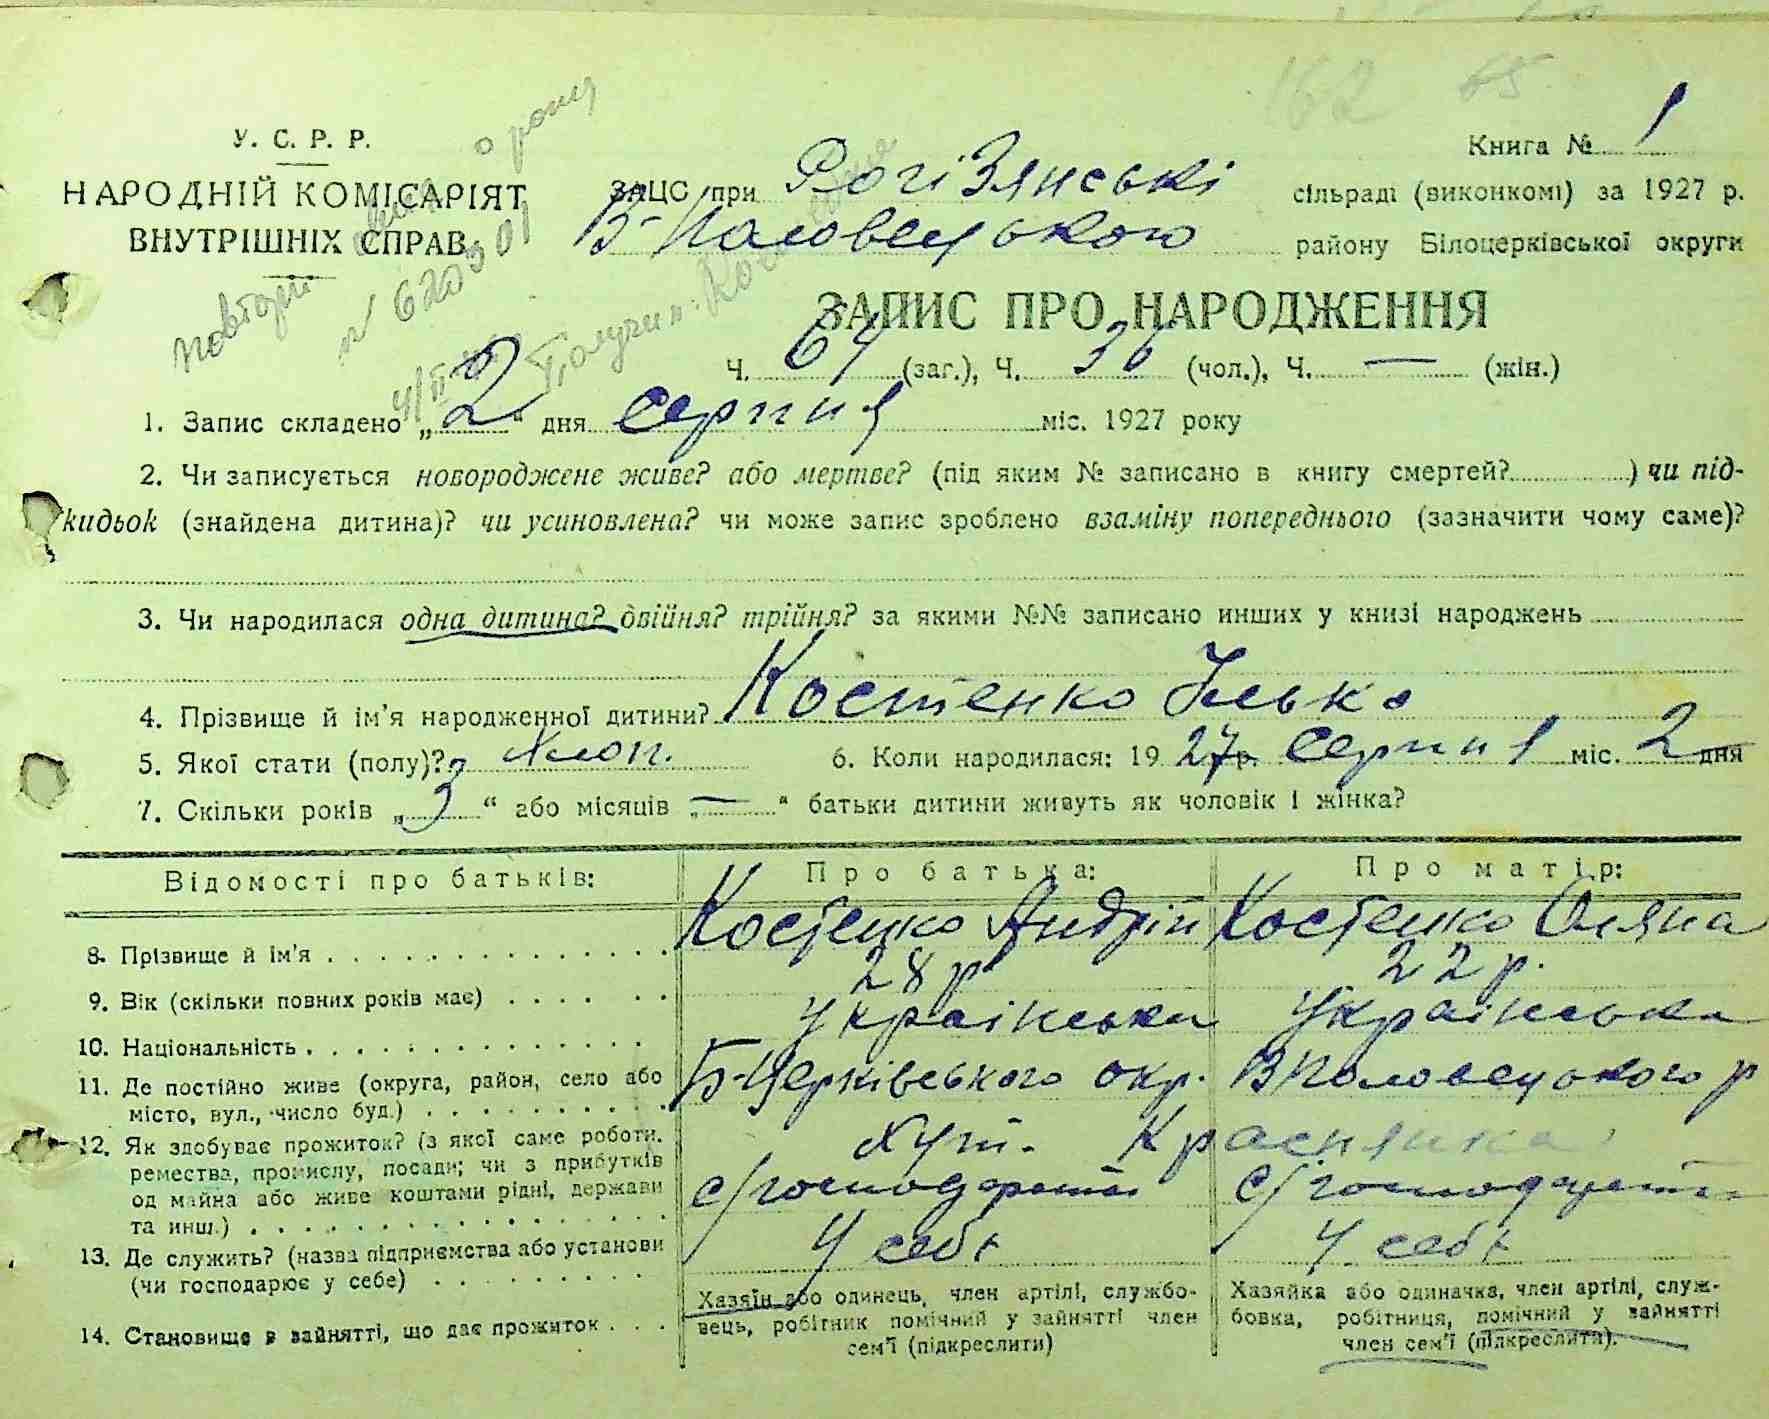 162 65
У. С. Р. Р.
НАРОДНІЙ КОМІСАРІЯТ
ВНУТРІШНІХ СПРАВ
Книга № 1
ЗАЦС при Рогізянські сільраді (виконкомі) за 1927 р.
В-Половецького району Білоцерківської округи
повторн
о рожд
n 620501
Получил:
4/II
ЗАПИС ПРО НАРОДЖЕННЯ
Ч. 64 (заг.), Ч. 36 (чол.), Ч. — (жін.)
1. Запис складено „2“ дня серпня міс. 1927 року
2. Чи записується новороджене живе? або мертве? (під яким № записано в книгу смертей?) чи під-
кидьок (знайдена дитина)? чи усиновлена? чи може запис зроблено взаміну попереднього (зазначити чому саме)?
3. Чи народилася одна дитина? двійня? трійня? за якими №№ записано инших у книзі народжень
4. Прізвище й ім'я народженної дитини? Костенко Ілько
5. Якої стати (полу)? Хлоп. 6. Коли народилася: 1927р. Серпня міс. 2 дня
7. Скільки років „3“ або місяців „—“ батьки дитини живуть як чоловік і жінка?
Відомості про батьків: Про батька: Про матір:
8. Прізвище й ім'я Костенко Андрій Костенко Оляна
9. Вік (скільки повних років має) 28 р 22 р.
10. Національність Українська Українська
11. Де постійно живе (округа, район, село або Б-Церківського окр. ВПоловецького р
місто, вул., число буд.) Хут. Краснянка
12. Як здобуває прожиток? (з якої саме роботи,
ремества, промислу, посади; чи з прибутків
од майна або живе коштами рідні, держави
та инш.) с/господарства с/господарства
13. Де служить? (назва підприємства або установи
(чи господарює у себе) У себе У себе
14. Становище в зайнятті, що дає прожиток
Хазяїн або одинець, член артілі, службо-
вець, робітник помічний у зайнятті член
сем'ї (підкреслити)
Хазяйка або одиначка, член артілі, служ-
бовка, робітниця, помічний у зайнятті
член сем'ї (підкреслити).